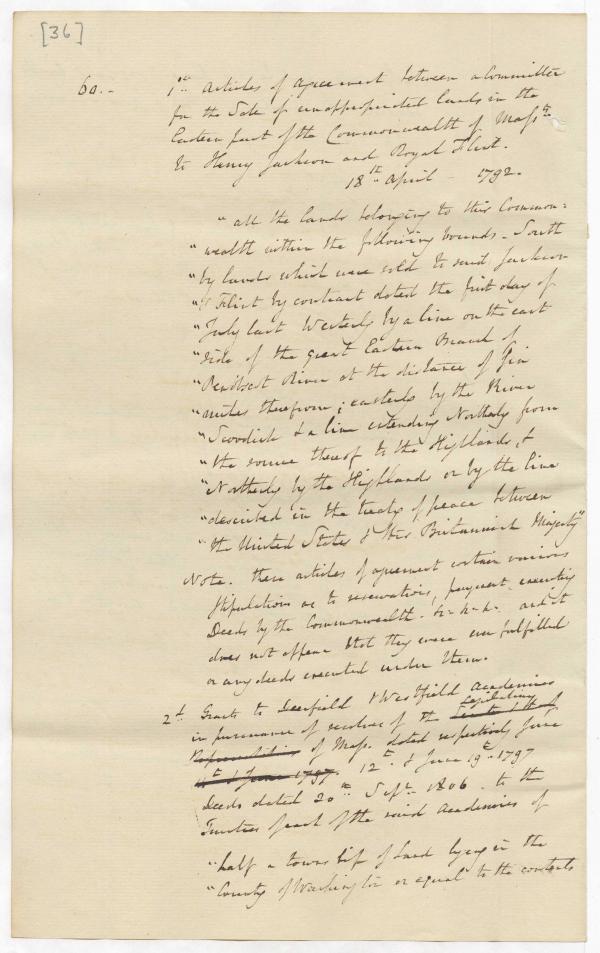 [36]
60.- 1st Articles of agreement between a Committee
for the Sale of unappropriated lands in the
Eastern part of the Commonwealth of Massts
to Henry Jackson and Royal Flint.
18th April - 1792.
"all the lands belonging to this Common=
"wealth within the following bounds - South
"by lands which were sold to said Jackson
"& Flint by contract dated the first day of
"July last Westerly by a line on the east
"side of the great Eastern Branch of
"Penobscot River at the distance of Six
"miles therefrom; easterly by the River
"Scoodick & a line extending Northerly from
"the source thereof to the Highlands, &
"Northerly by the Highlands or by the line
"described in the treaty of peace between
"the United States & His Britannick Majesty"
Note. these articles of agreement contain various
stipulations as to reservations, payment - executing
Deeds by the Commonwealth. &c. &c. &c. and it
does not appear that they were ever fulfilled
or any deeds executed under them.
2d. Grants to Deerfield & Westfield Academies
in pursuance of resolves of the Legislature
of Mass. dated respectively June
12th & June 19th 1797
Deeds dated 20th Septr 1806 - to the
Trustees of each of the said Academies of
"half a township of Land lying in the
"County of Washington or equal to the contents